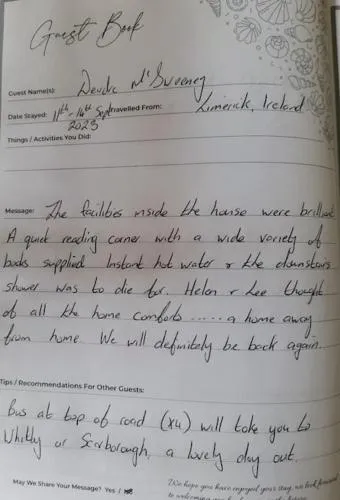 Guest Book
Guest Name(s): Deirdre McSweeney
Date Stayed: 11th - 14th Sept Travelled From: Limerick, Ireland
2023
Things / Activities You Did:
Message: The facilities inside the house were brilliant
A quiet reading corner with a wide variety of
books supplied Instant hot water & the downstairs
shower was to die for. Helen & Lee thought
of all the home comforts ..... a home away
from home. We will definitely be back again.
Tips / Recommendations For Other Guests:
Bus at top of road (X4) will take you to
Whitby or Scarborough, a lovely day out.
May We Share Your Message? Yes / No
We hope you have enjoyed your stay, we look forward
to welcoming you